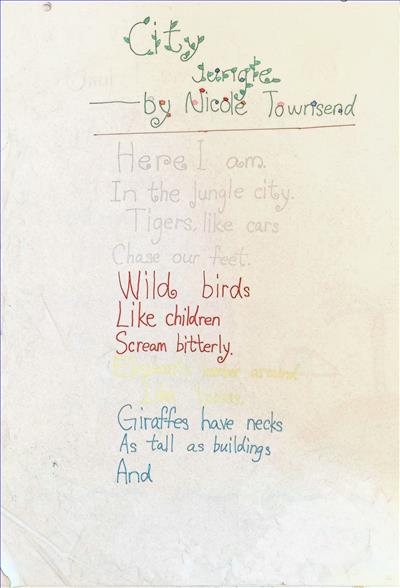 City
Jungle
by Nicole Townsend
Here I am.
In the jungle city.
Tigers, like cars
Chase our feet.
Wild birds
Like children
Scream bitterly.
around
like
Giraffes have necks
As tall as buildings
And